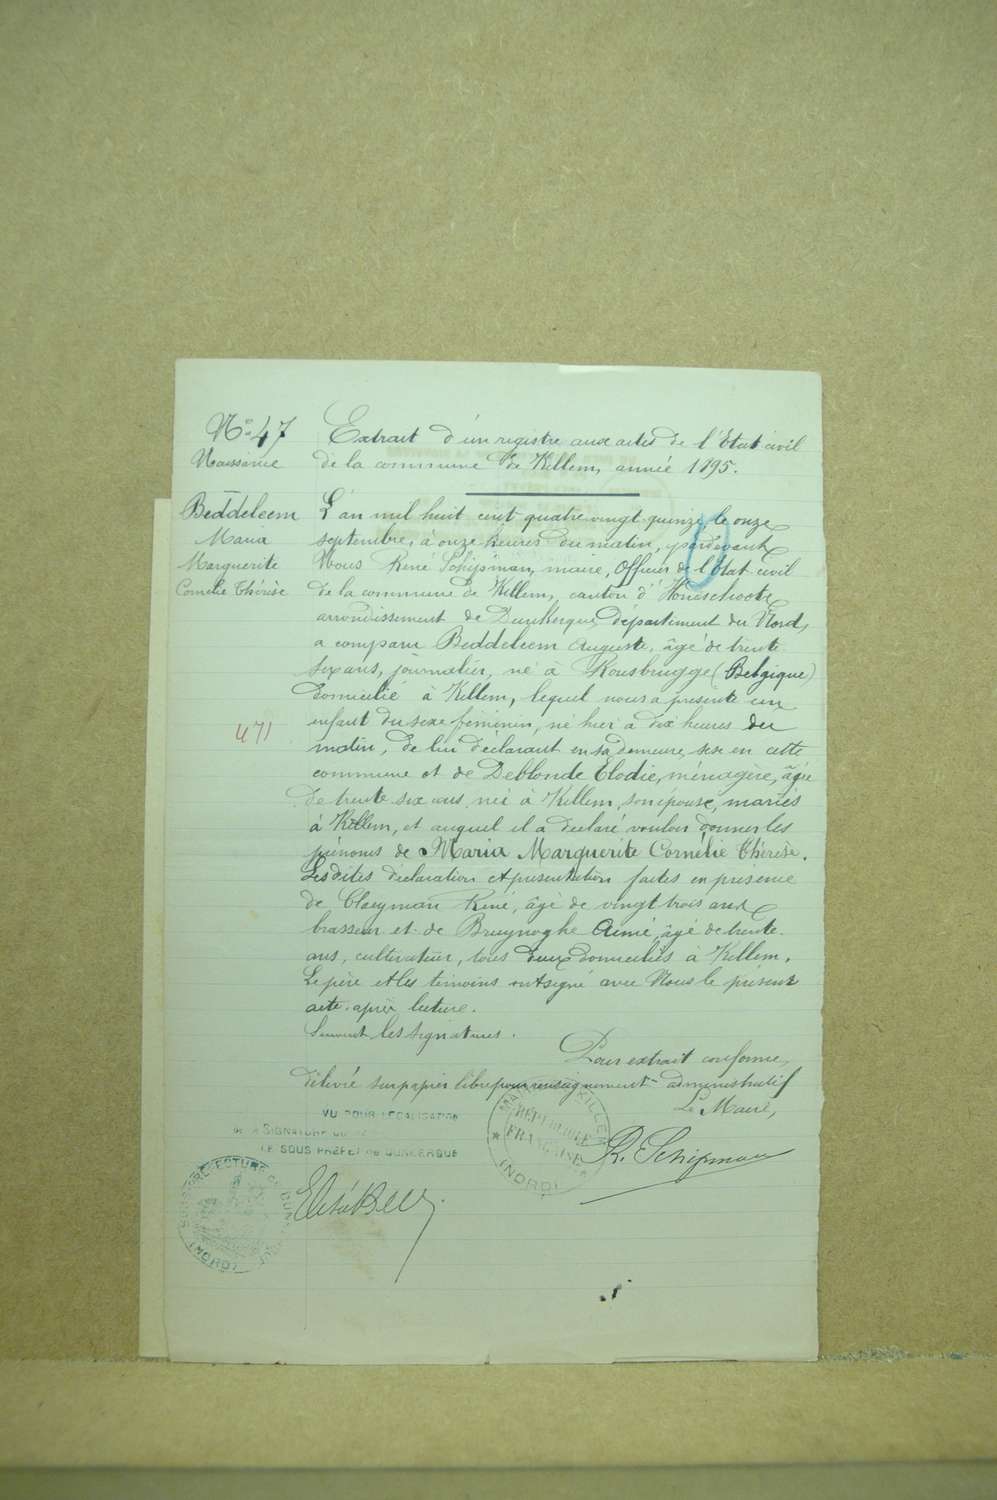 N° 47
Naissance
Beddeleem
Maria
Marguerite
Cornélie Thérèse
471
Extrait d'un registre aux actes de l'Etat civil
de la commune de Killem, année 1895.
L'an mil huit cent quatre vingt quinze le onze
septembre, à onze heures du matin, pardevant
Nous René Schipman, maire, Officier de l'Etat civil
de la commune de Killem, canton d'Hondschoote,
arrondissement de Dunkerque, département du Nord,
a comparu Beddeleem Auguste, âgé de trente
six ans, journalier, né à Rousbrugge (Belgique)
domicilié à Killem, lequel nous a présenté un
enfant du sexe féminin, né hier à dix heures du
matin, de lui déclarant en sa demeure, sise en cette
commune et de Deblonde Elodie, ménagère, âgée
de trente six ans, née à Killem, son épouse, mariés
à Killem, et auquel il a déclaré vouloir donner les
prénoms de Maria Marguerite Cornélie Thérèse.
Lesdites déclaration et présentation faites en présence
de Claeyman René, âgé de vingt trois ans
brasseur et de Bruynoghe Aimé, âgé de trente
ans, cultivateur, tous deux domiciliés à Killem.
Le père et les témoins ont signé avec Nous le présent
acte après lecture.
Suivent les signatures.
Pour extrait conforme,
délivré sur papier libre pour renseignement administratif
Le Maire,
R. Schipman
MAIRIE DE KILLEM
RÉPUBLIQUE
FRANÇAISE
(NORD)
VU POUR LEGALISATION
DE LA SIGNATURE
LE SOUS PRÉFET DE DUNKERQUE
SOUS-PRÉFECTURE DE DUNKERQUE
(NORD)